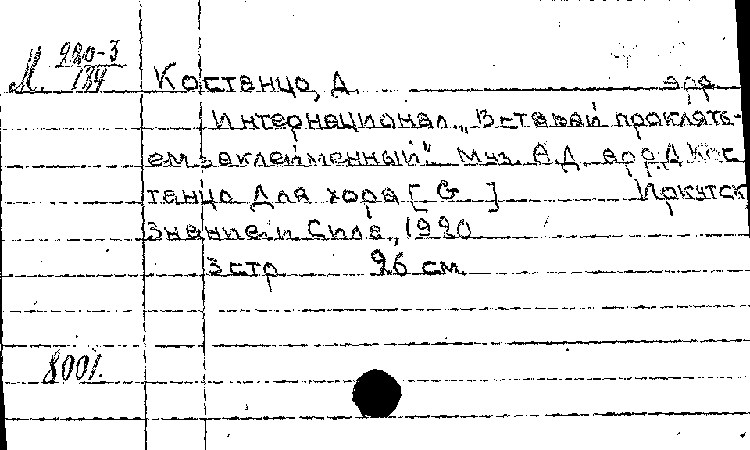 М. 220-3
134
Костанцо, Д. арр
Интернационал „Вставай проклять-
ем заклейменный“ муз. А.Д. арр. Д. Кос
танцо Для хора [G ] Иркутск
Знание и Сила, 1920
3 стр 26 см.
8001.